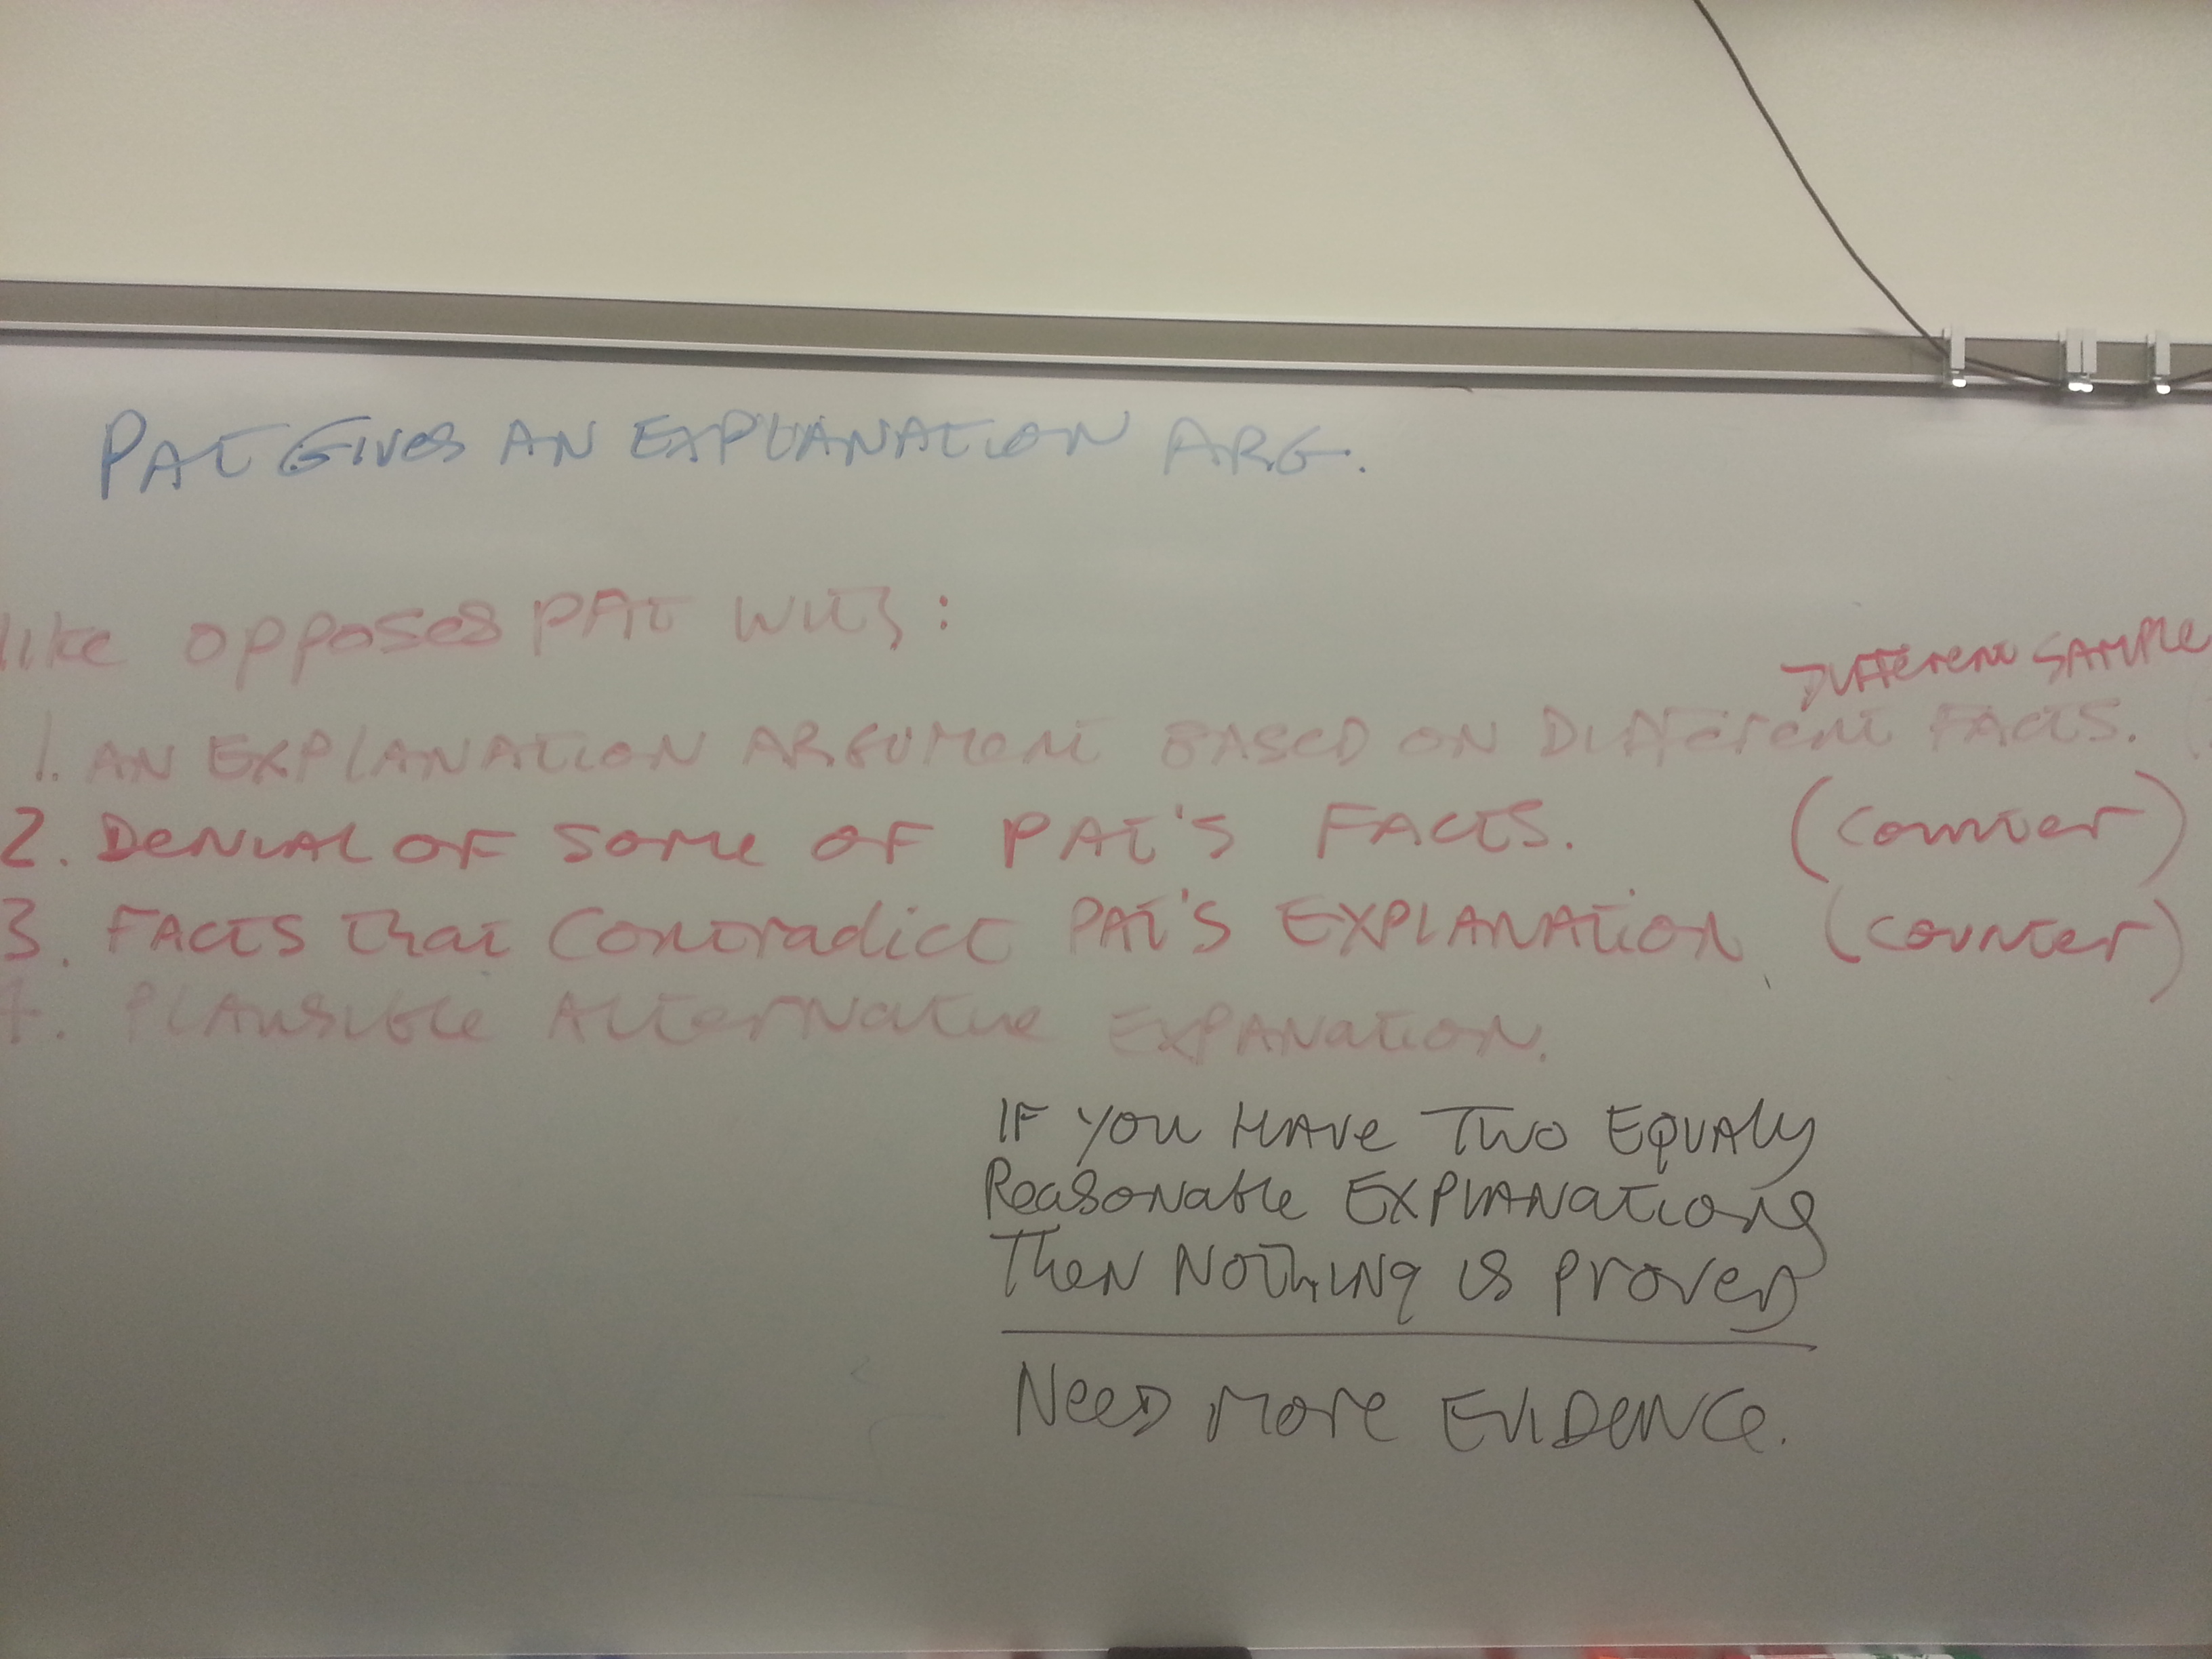 PAT GIVES AN EXPLANATION ARG.
like opposes PAT with:
DIFFERENT SAMPLE
1. AN EXPLANATION ARGUMENT BASED ON DIFFERENT FACTS.
2. DENIAL OF SOME OF PAT'S FACTS. (counter)
3. FACTS that Contradict PAT'S EXPLANATION (counter)
4. PLAUSIBLE ALTERNATIVE EXPANATION.
IF YOU HAVE TWO EQUALY
REASONABLE EXPLANATIONS
THEN NOTHING IS PROVED
NEED MORE EVIDENCE.